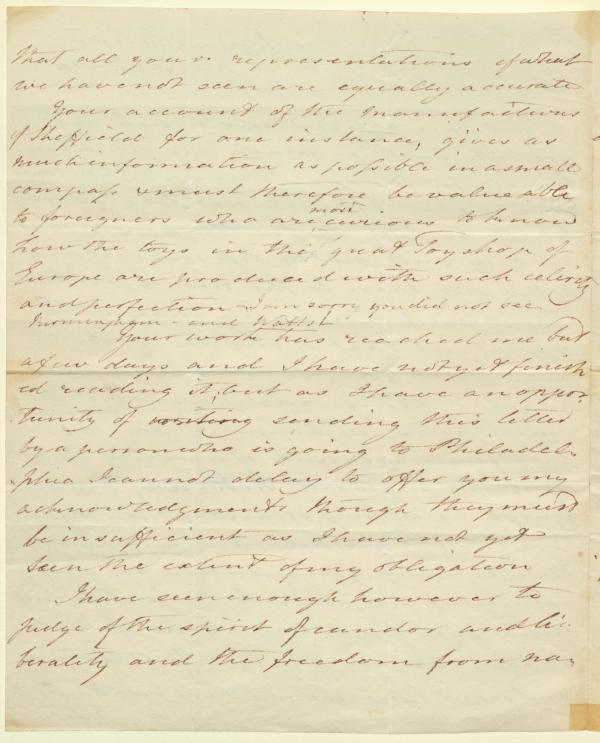 that all your representations of what
we have not seen are equally accurate
Your account of the manufactures
of Sheffield for one instance, gives as
much information as possible in a small
compass & must therefore be valueable
to foreigners who are most curious to know
how the toys in the great Toyshop of
Europe are produced with such celerity
and perfection - I am sorry you did not see
Birmingham - and Watts!
Your work has reached me but
a few days and I have not yet finish
ed reading it; but as I have an oppor-
tunity of writing sending this letter
by a person who is going to Philadel-
phia I cannot delay to offer you my
acknowledgments though they must
be insufficient as I have not yet
seen the extent of my obligation
I have seen enough however to
judge of the spirit of candor and li-
berality and the freedom from na-